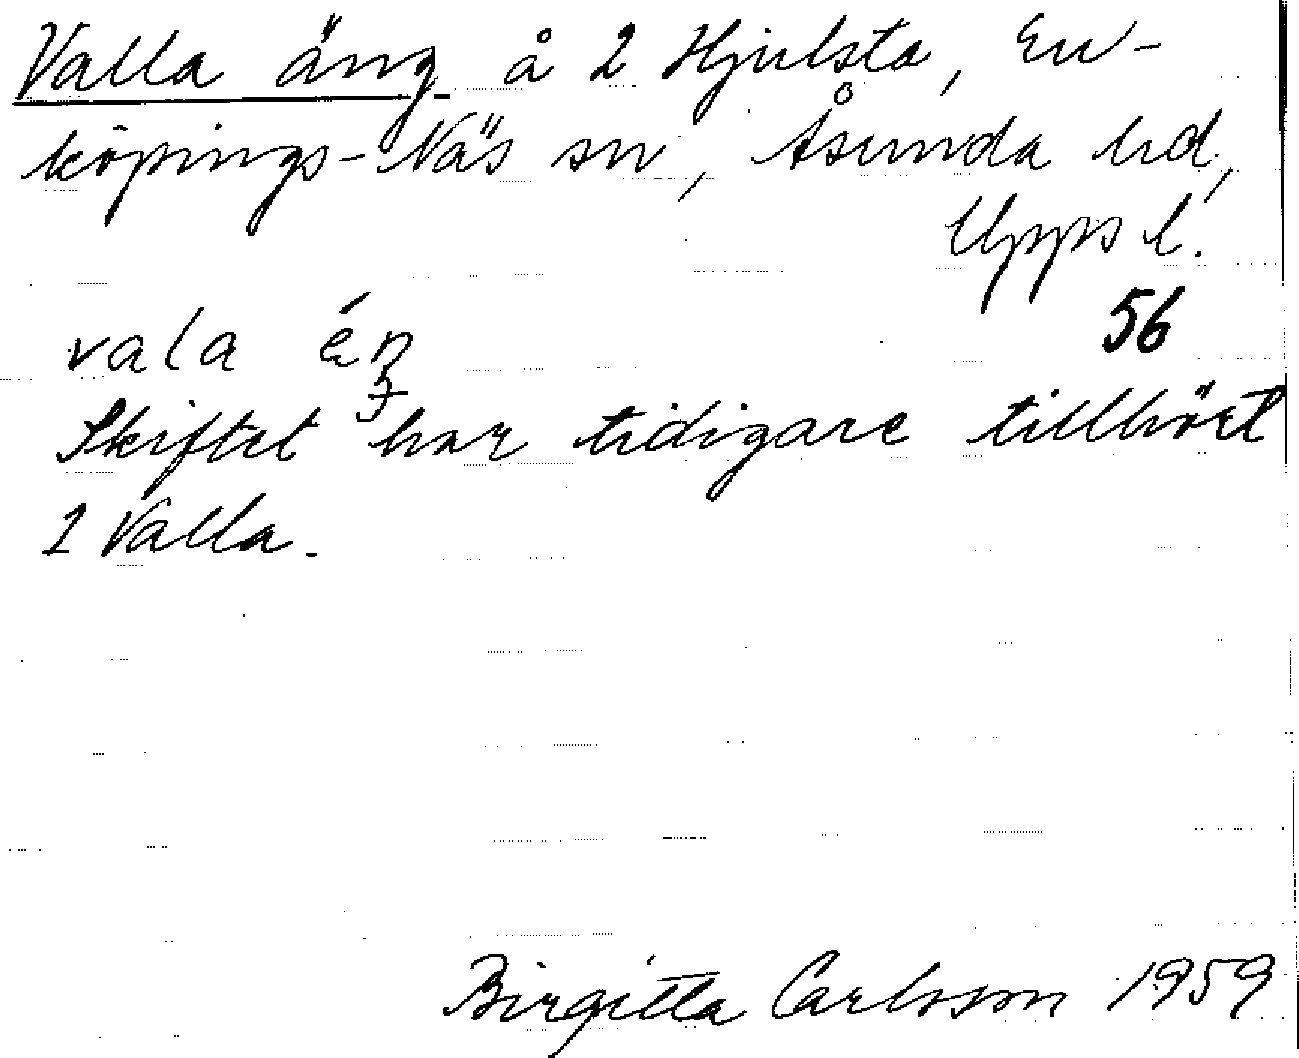 Valla äng å 2 Hjulsta, En-
köpings-Näs sn, Åsunda hd,
Upps l.
56
vala éŋ
Skiftet har tidigare tillhört
1 Valla.
Birgitta Carlsson 1959